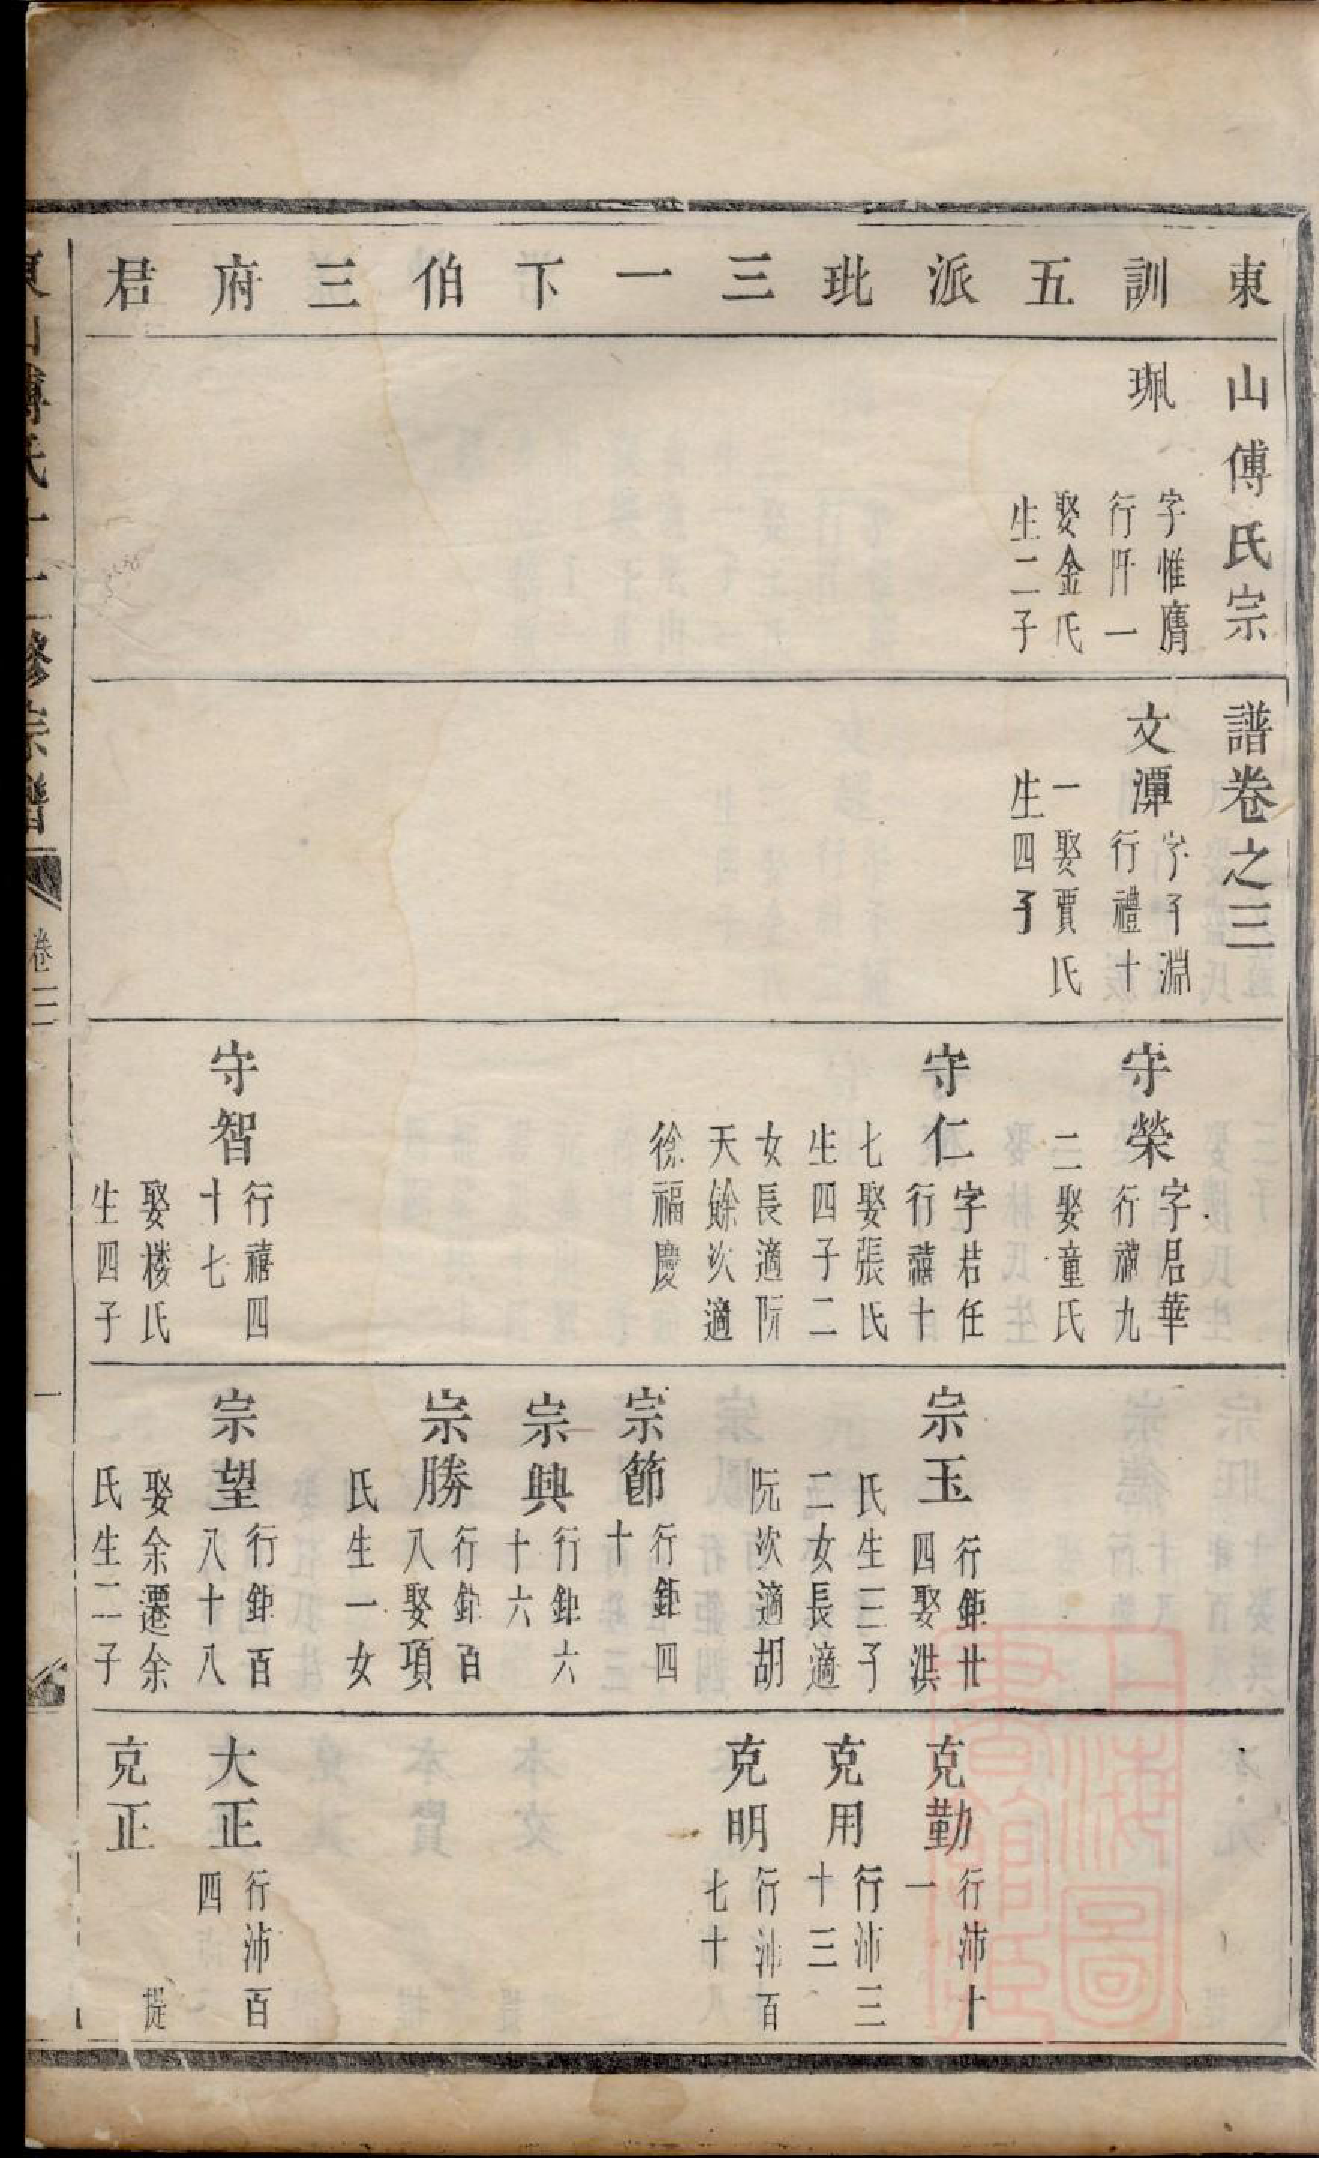 東山傅氏宗譜卷之三
訓五派玭三一下伯三府君
珮
字惟膺
行阡一
娶金氏
生二子
文潭
字子淵
行禮十
一娶賈氏
生四子
守榮
字君華
行禧九
二娶童氏
守仁
字若任
行禧十
七娶張氏
生四子二
女長適阮
天餘次適
徐福慶
守智
行禧四
十七
娶楼氏
生四子
宗玉
行鉅廿
四娶洪
氏生三子
二女長適
阮次適胡
宗節
行鉅四
十
宗興
行鉅六
十六
宗勝
行鉅百
八娶項
氏生一女
宗望
行鉅百
八十八
娶余遷余
氏生二子
克勤
行沛十
一
克用
行沛三
十三
克明
行沛百
七十
大正
行沛百
四
克正
提
卷三
一
上海圖
書館藏